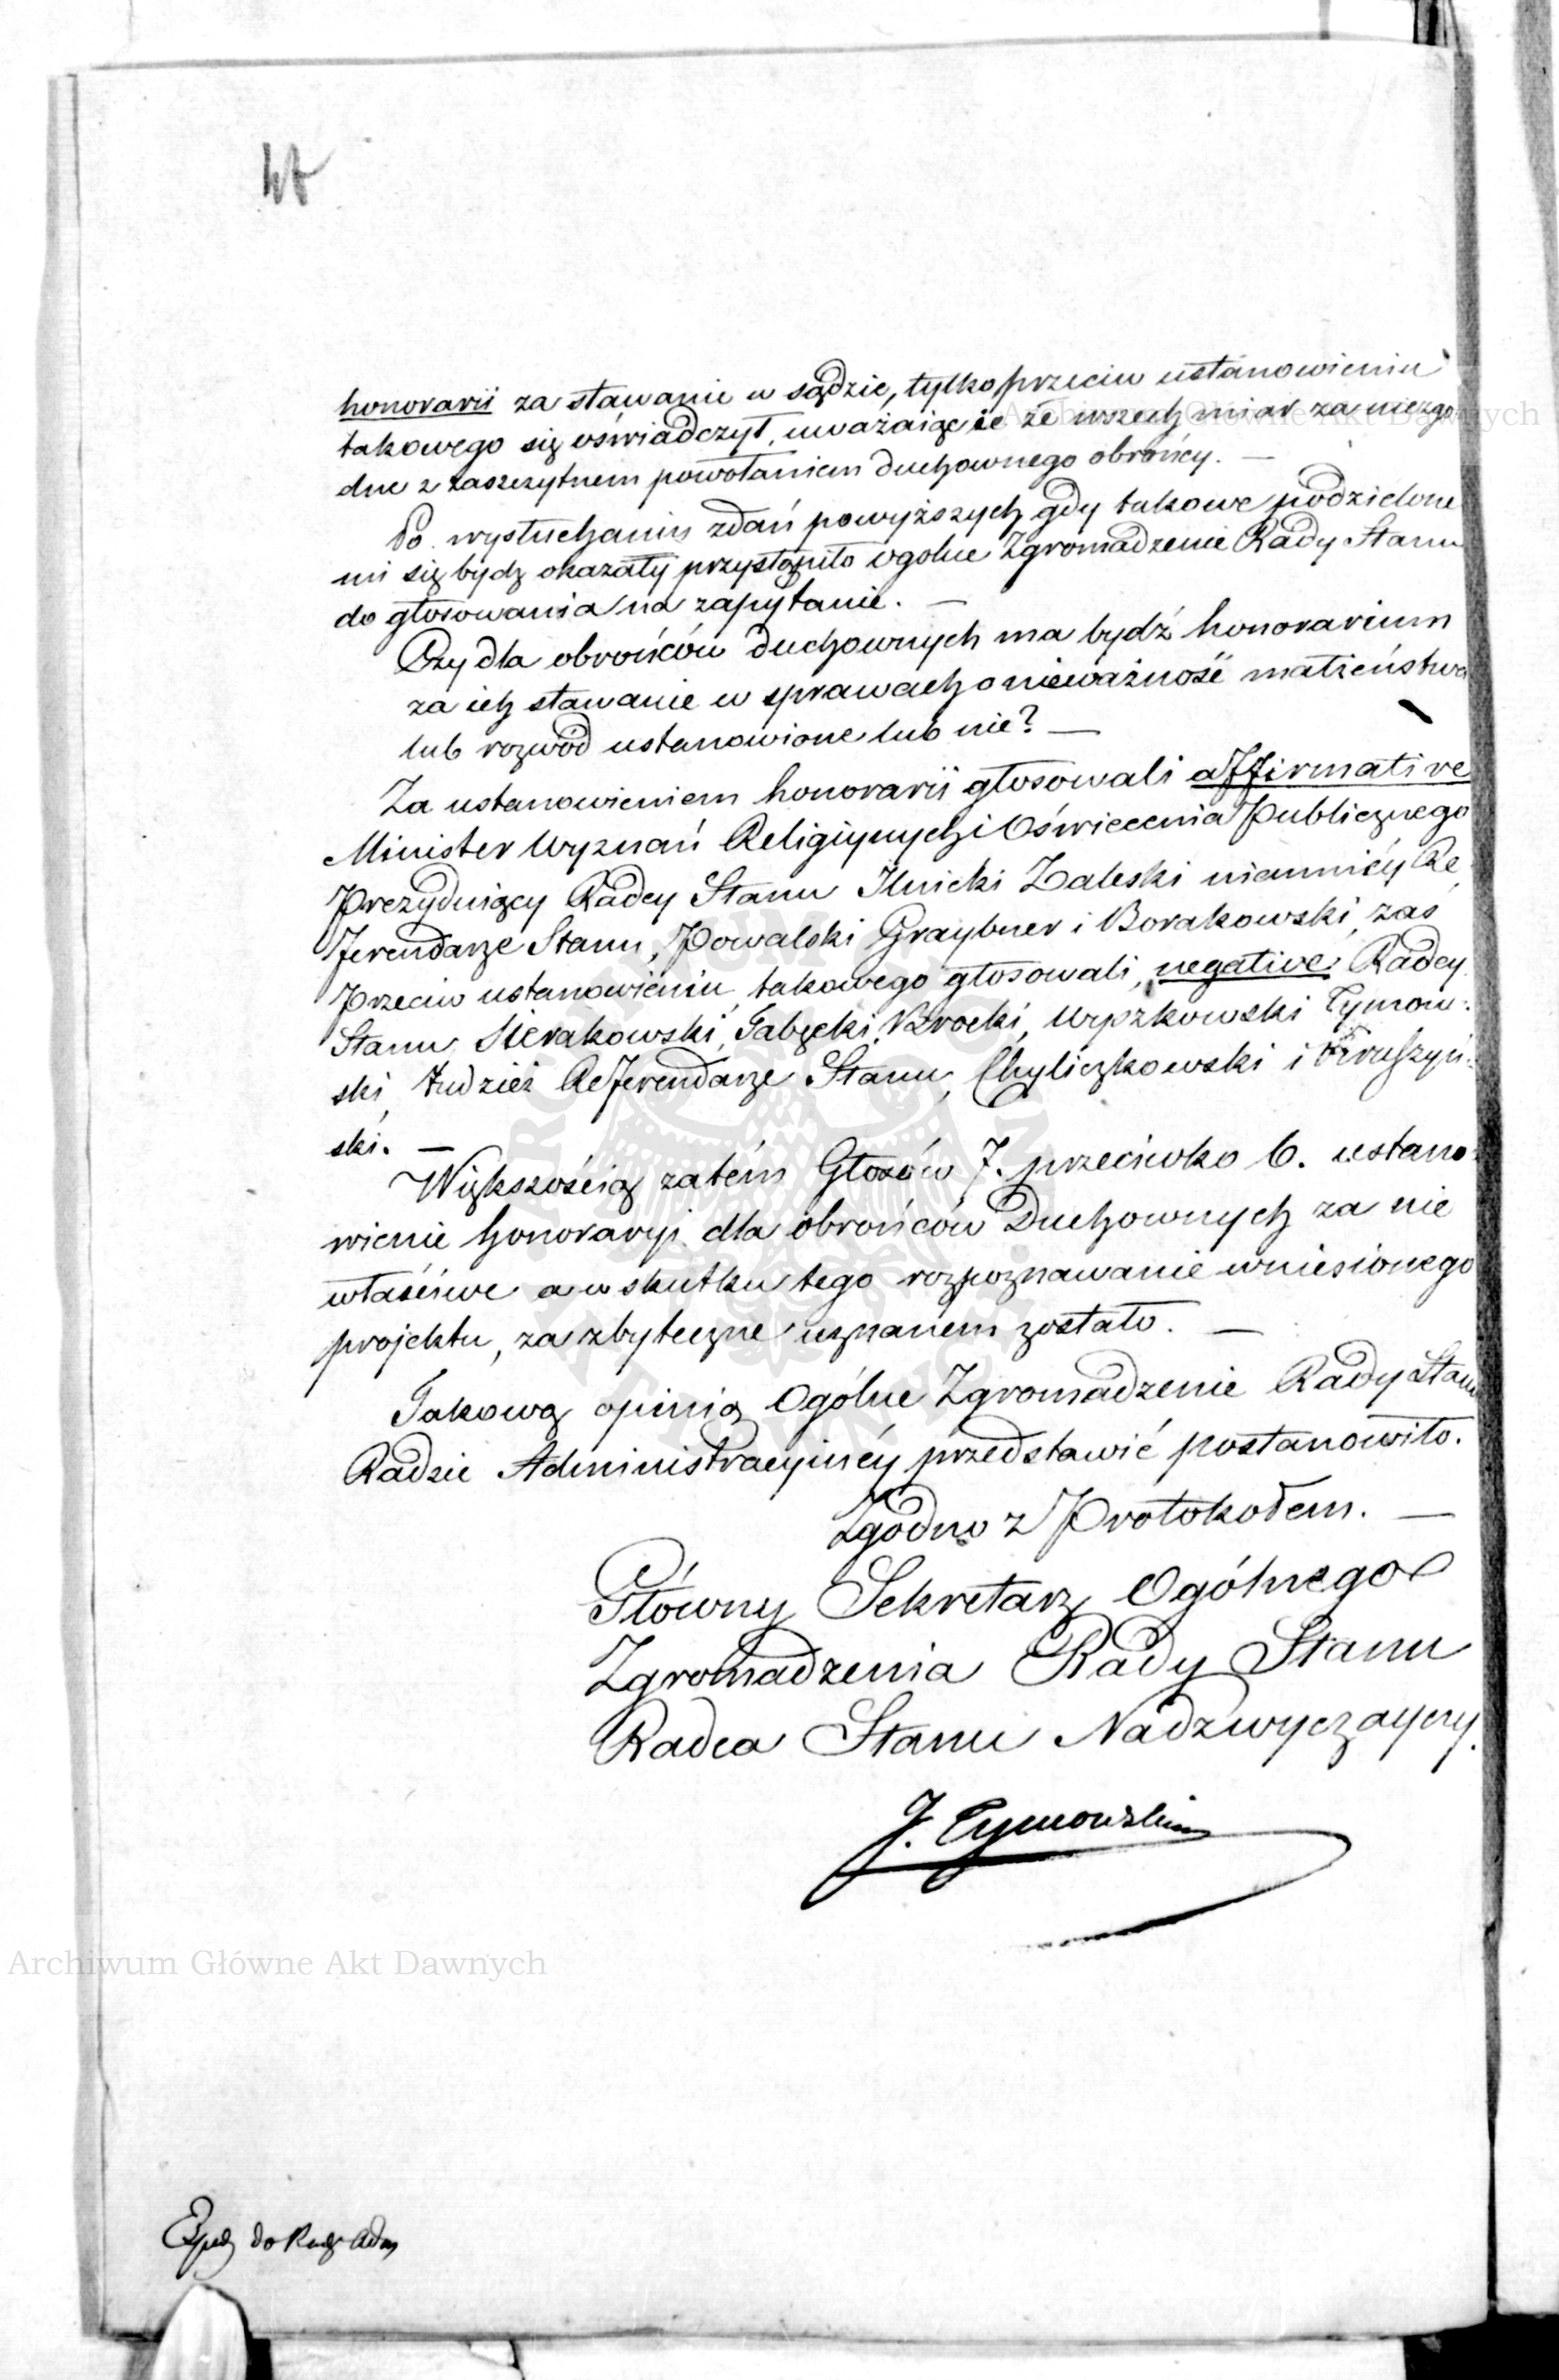 honorarii za stawanie w sądzie, tylko przeciw ustanowieniu
takowego się oświadczył, uważaiąc ie ze wszech miar za niezgo
dne z zaszczytnem powołaniem duchownego obrońcy. —
Po wysłuchaniu zdań powyższych gdy takowe podzielone
mi się bydź okazały przystąpiło ogolne Zgromadzenie Rady Stanu
do głosowania na zapytanie. —
Czy dla obrońców duchownych ma bydź honorarium
za ich stawanie w sprawach o nieważność małżeństwa
lub rozwód ustanowione lub nie? —
Za ustanowieniem honorarii głosowali affirmative
Minister Wyznań Religiynych i Oświecenia Publicznego
Prezyduiący Radcy Stanu Ilnicki Zaleski niemniéy Re
ferendarze Stanu, Powalski Graybner i Borakowski, zaś
przeciw ustanowieniu takowego głosowali, negative Radcy
Stanu Sierakowski, Tabęcki, Brocki, Wyczkowski Tymow:
ski, tudzież Referendarze Stanu, Chyliczkowski i Kruszyń:
ski. —
Większością zatém Głosów 7. przeciwko 6. ustano:
wienie honoraryi dla obrońców Duchownych za nie
właściwe a w skutku tego rozpoznawanie wniesionego
projektu, za zbyteczne uznanem zostało. —
Takową opinią Ogólne Zgromadzenie Rady Stanu
Radzie Administracyinéy przedstawić postanowiło.
Zgodno z Protokołem. —
Główny Sekretarz Ogólnego
Zgromadzenia Rady Stanu
Radca Stanu Nadzwyczayny.
J. Tymowski
do Rady Adm
Archiwum Główne Akt Dawnych
Archiwum Główne Akt Dawnych